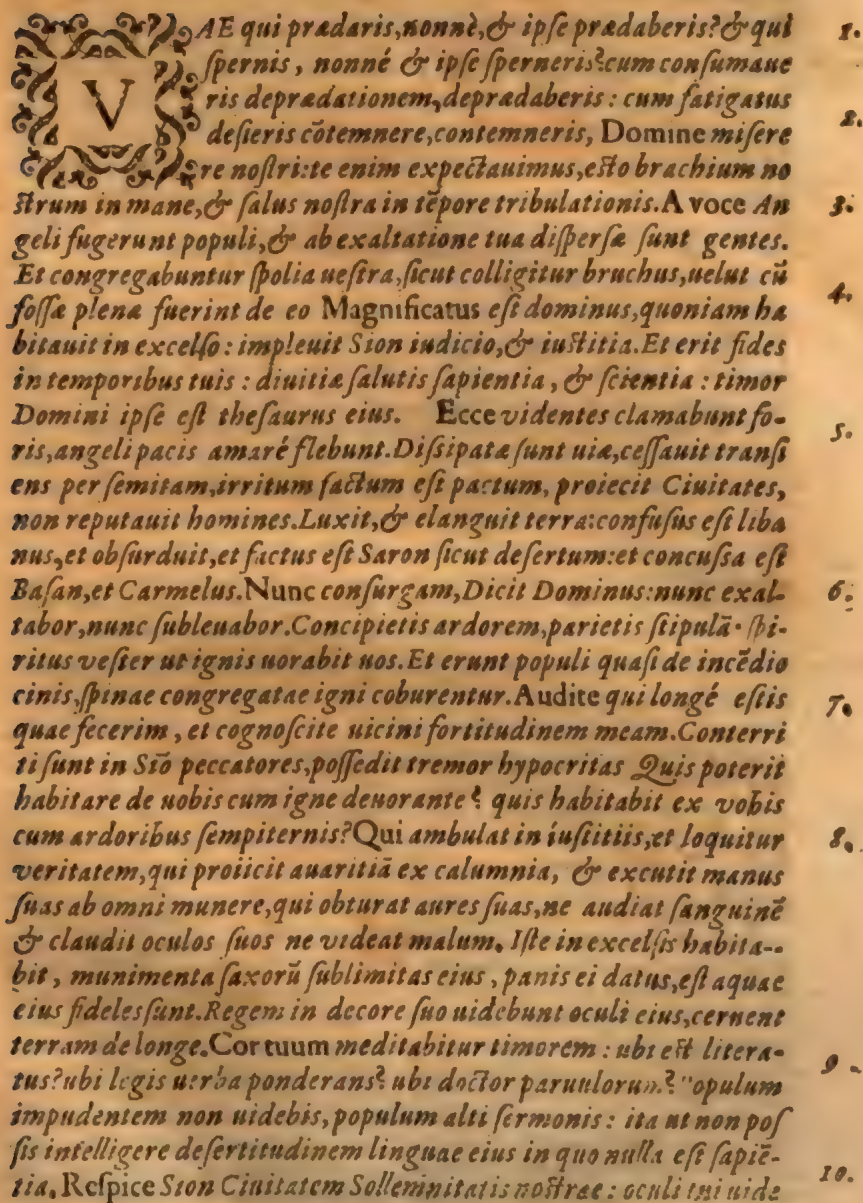 VAE qui prædaris, nonnè, & ipſe prædaberis? & qui 1.
ſpernis, nonné & ipſe ſperneris? cum conſumaue
ris deprædationem, deprædaberis: cum fatigatus 2.
deſieris cõtemnere, contemneris, Domine miſere
re noſtri: te enim expectauimus, eſto brachium no
ſtrum in mane, & ſalus noſtra in tẽpore tribulationis. A voce An 3.
geli fugerunt populi, & ab exaltatione tua diſperſæ ſunt gentes.
Et congregabuntur ſpolia ueſtra, ſicut colligitur bruchus, uelut cũ
foſſæ plenæ fuerint de eo Magnificatus eſt dominus, quoniam ha 4.
bitauit in excelſo: impleuit Sion iudicio, & iuſtitia. Et erit fides
in temporibus tuis: diuitiæ ſalutis ſapientia, & ſcientia: timor
Domini ipſe eſt theſaurus eius. Ecce videntes clamabunt fo- 5.
ris, angeli pacis amaré flebunt. Diſsipatæ ſunt uiæ, ceſſauit tranſi
ens per ſemitam, irritum factum eſt pactum, proiecit Ciuitates,
non reputauit homines. Luxit, & elanguit terra: confuſus eſt liba
nus, et obſurduit, et factus eſt Saron ſicut deſertum: et concuſſa eſt
Baſan, et Carmelus. Nunc conſurgam, Dicit Dominus: nunc exal- 6.
tabor, nunc ſubleuabor. Concipietis ardorem, parietis ſtipulã. ſpi-
ritus veſter ut ignis uorabit uos. Et erunt populi quaſi de incẽdio
cinis, ſpinae congregatae igni coburentur. Audite qui longé eſtis 7.
quae fecerim, et cognoſcite uicini fortitudinem meam. Conterri
ti ſunt in Siõ peccatores, poſſedit tremor hypocritas Quis poterit
habitare de uobis cum igne deuorante? quis habitabit ex vobis
cum ardoribus ſempiternis? Qui ambulat in iuſtitiis, et loquitur 8.
veritatem, qui proiicit auaritiã ex calumnia, & excutit manus
ſuas ab omni munere, qui obturat aures ſuas, ne audiat ſanguinẽ
& claudit oculos ſuos ne videat malum. Iſte in excelſis habita--
bit, munimenta ſaxorũ ſublimitas eius, panis ei datus, eſt aquae
eius fideles ſunt. Regem in decore ſuo uidebunt oculi eius, cernent
terram de longe. Cor tuum meditabitur timorem: ubi eſt litera- 9.
tus? ubi legis uerba ponderans? ubi doctor paruulorum? "opulum
impudentem non uidebis, populum alti ſermonis: ita ut non poſ
ſis intelligere deſertitudinem linguae eius in quo nulla eſt ſapiẽ-
tia, Reſpice Sion Ciuitatem Sollemnitatis noſtrae: oculi tui uide 10.